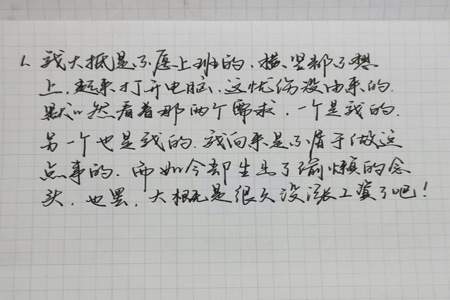 1. 我大抵是不愿上班的，横竖都不想
上，起来打开电脑，这忧伤没由来的，
默默然看着那两个需求，一个是我的，
另一个也是我的，我向来是不屑于做这
点事的，而如今却生出了偷懒的念
头，也罢，大概是很久没涨工资了吧！